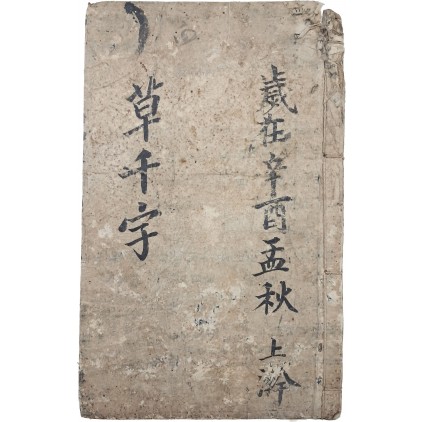 歲在辛酉孟秋上澣
草千字